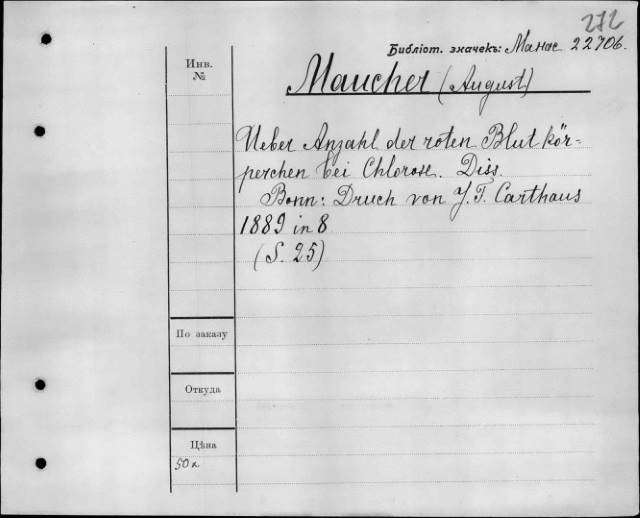 272
Библіот. значекъ: Манас 22706.
Инв.
№
Maucher (August)
Ueber Anzahl der roten Blutkör-
perchen bei Chlorose. Diss.
Bonn: Druch von J. F. Carthaus
1889 in 8
(S. 25)
По заказу
Откуда
Цѣна
50к